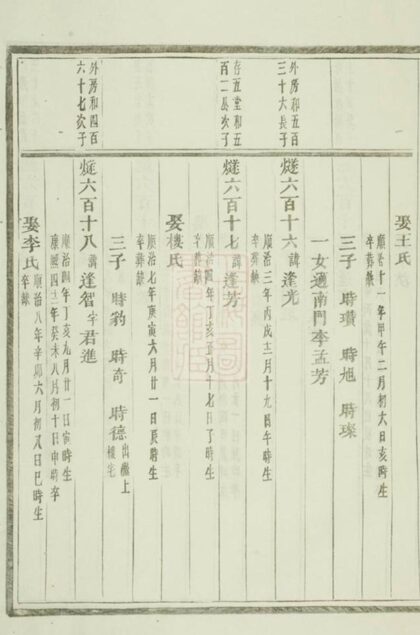 娶王氏
順治十一年甲午二月初六日亥時生
卒葬缺
三子 時瓚 時旭 時璨
一女適南門李孟芳
外房和五百
三十六長子
燧六百十六諱逢光
順治三年丙戌十二月十九日午時生
卒葬缺
存五堂和五
百二次子
燧六百十七諱逢芳
順治四年丁亥五月十七日丁時生
卒葬缺
娶樓氏
順治七年庚寅六月廿一日辰時生
卒葬缺
三子 時豹 時奇 時德
出繼上
樓宅
外房和四百
六十七次子
燧六百十八諱逢智字君進
順治四年丁亥九月廿一日寅時生
康熙四十二年癸未八月初十日申時卒
娶李氏
順治八年辛卯六月初又日巳時生
卒缺